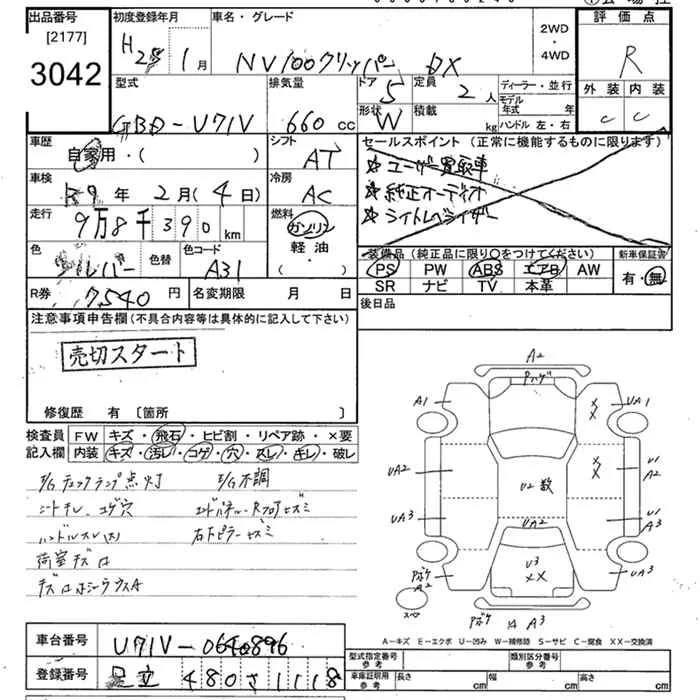 出品番号
[2177]
3042
初度登録年月
H25年 1月
車名・グレード
NV100クリッパー DX
2WD
・
4WD
評価点
R
外装 内装
C C
型式
GBD-U71V
排気量
660 cc
ドア
5
形状
W
定員
2 人
積載
kg
ディーラー・並行
モデル年式 年
ハンドル 左・右
車歴
自家用・( )
シフト
AT
セールスポイント (正常に機能するものに限ります)
☆ユーザー買取車
☆純正オーディオ
☆ライトレベライザー
車検
R9年 2月(4日)
冷房
AC
走行
9万8千390km
燃料
ガソリン
軽油
・( )
色
シルバー
色替
色コード
A31
装備品 (純正品に限り〇をつけてください)
PS PW ABS エアB AW
SR ナビ TV 本革
新車保証書
有・無
R券 7,540円
名変期限 月 日
後日品
注意事項申告欄 (不具合内容等は具体的に記入して下さい)
売切スタート
修復歴 有 〔箇所 〕
検査員
記入欄
FW キズ・飛石・ヒビ割・リペア跡・×要
内装 キズ・汚レ・コゲ・穴・スレ・キレ・破レ
E/Gチェックランプ点灯 E/G不調
シートキレ、コゲ穴 エンドパネル・Rフロアセズミ
ハンドルスレ(大) 右Fピラーセズミ
荷室キズ
A2
A1
UA1
××
UA2
U2 数
××
U1
A2
UA3
UA2
U1
A3
U3
××
A2
UA3
スペア
A3
A-キズ E-エクボ U-凹み W-補修跡 S-サビ C-腐食 XX-交換済
車台番号
U71V-0640896
登録番号
足立 480 さ 1118
型式指定番号
参考
類別区分番号
参考
車庫証明用
参考
長さ cm
幅 cm
高さ cm